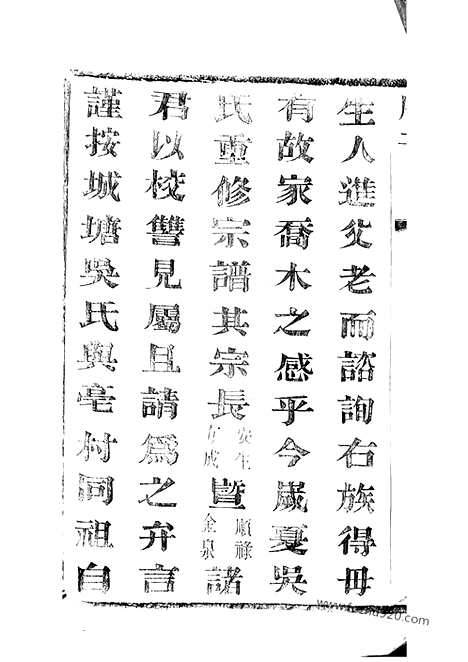 生人進父老而諮詢右族得毋
有故家喬木之感乎今歲夏吳
氏重修宗譜其宗長安生成暨順祿金泉諸
君以校讐見屬且請爲之弁言
謹按城塘吳氏與亳村同祖自